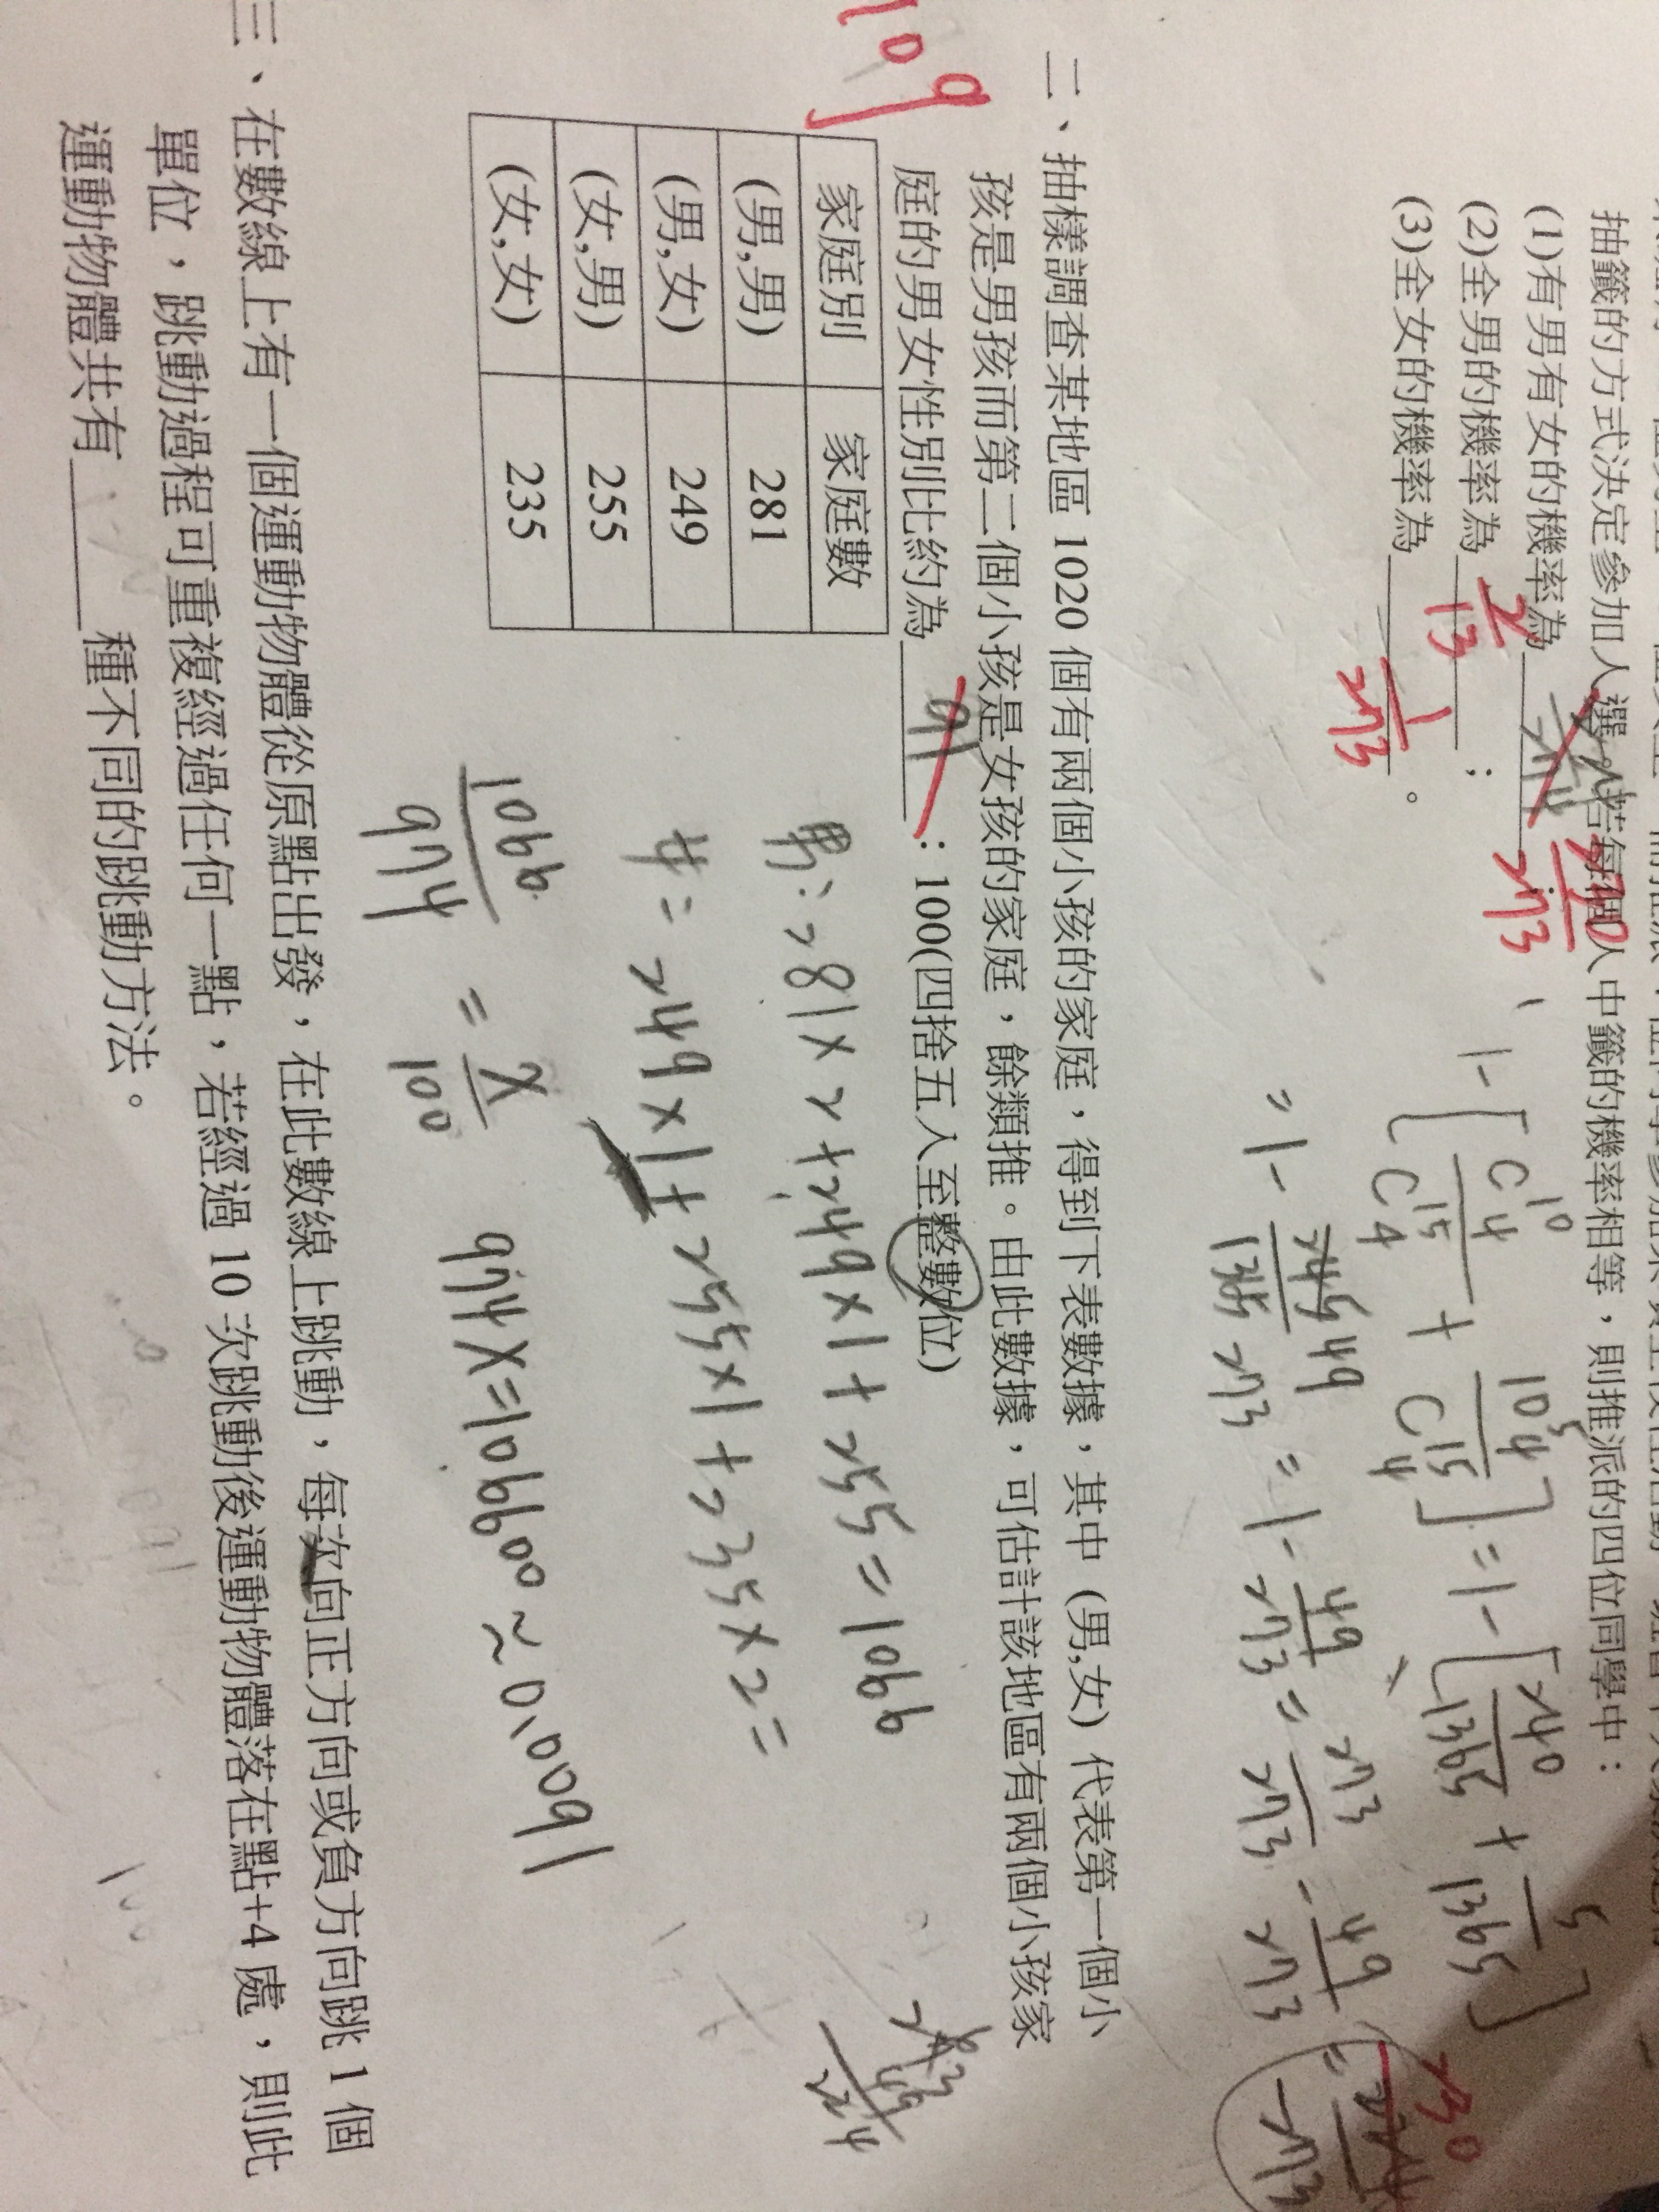 抽籤的方式決定參加人選，若每個人中籤的機率相等，則推派的四位同學中：
(1)有男有女的機率為
230/273
(2)全男的機率為 2/13 ；
(3)全女的機率為 1/273 。
1-[C10 4/C15 4 + /C15 4]=1-[240/1365 + 5/1365]
=1- 245 49/1365 273 =1- 49/273 = 273/273 - 49/273 = 224/273
230
二、抽樣調查某地區 1020 個有兩個小孩的家庭，得到下表數據，其中（男,女）代表第一個小
孩是男孩而第二個小孩是女孩的家庭，餘類推。由此數據，可估計該地區有兩個小孩家
庭的男女性別比約為 91 ：100(四捨五入至整數位)
109
家庭別 家庭數
(男,男) 281
(男,女) 249
(女,男) 255
(女,女) 235
男:281×2+249×1+255=1066
女=249×1+255×1+235×2=
1066/974 = X/100
974X=106600≈0.0091
三、在數線上有一個運動物體從原點出發，在此數線上跳動，每次向正方向或負方向跳 1 個
單位，跳動過程可重複經過任何一點，若經過 10 次跳動後運動物體落在點+4 處，則此
運動物體共有＿＿＿種不同的跳動方法。